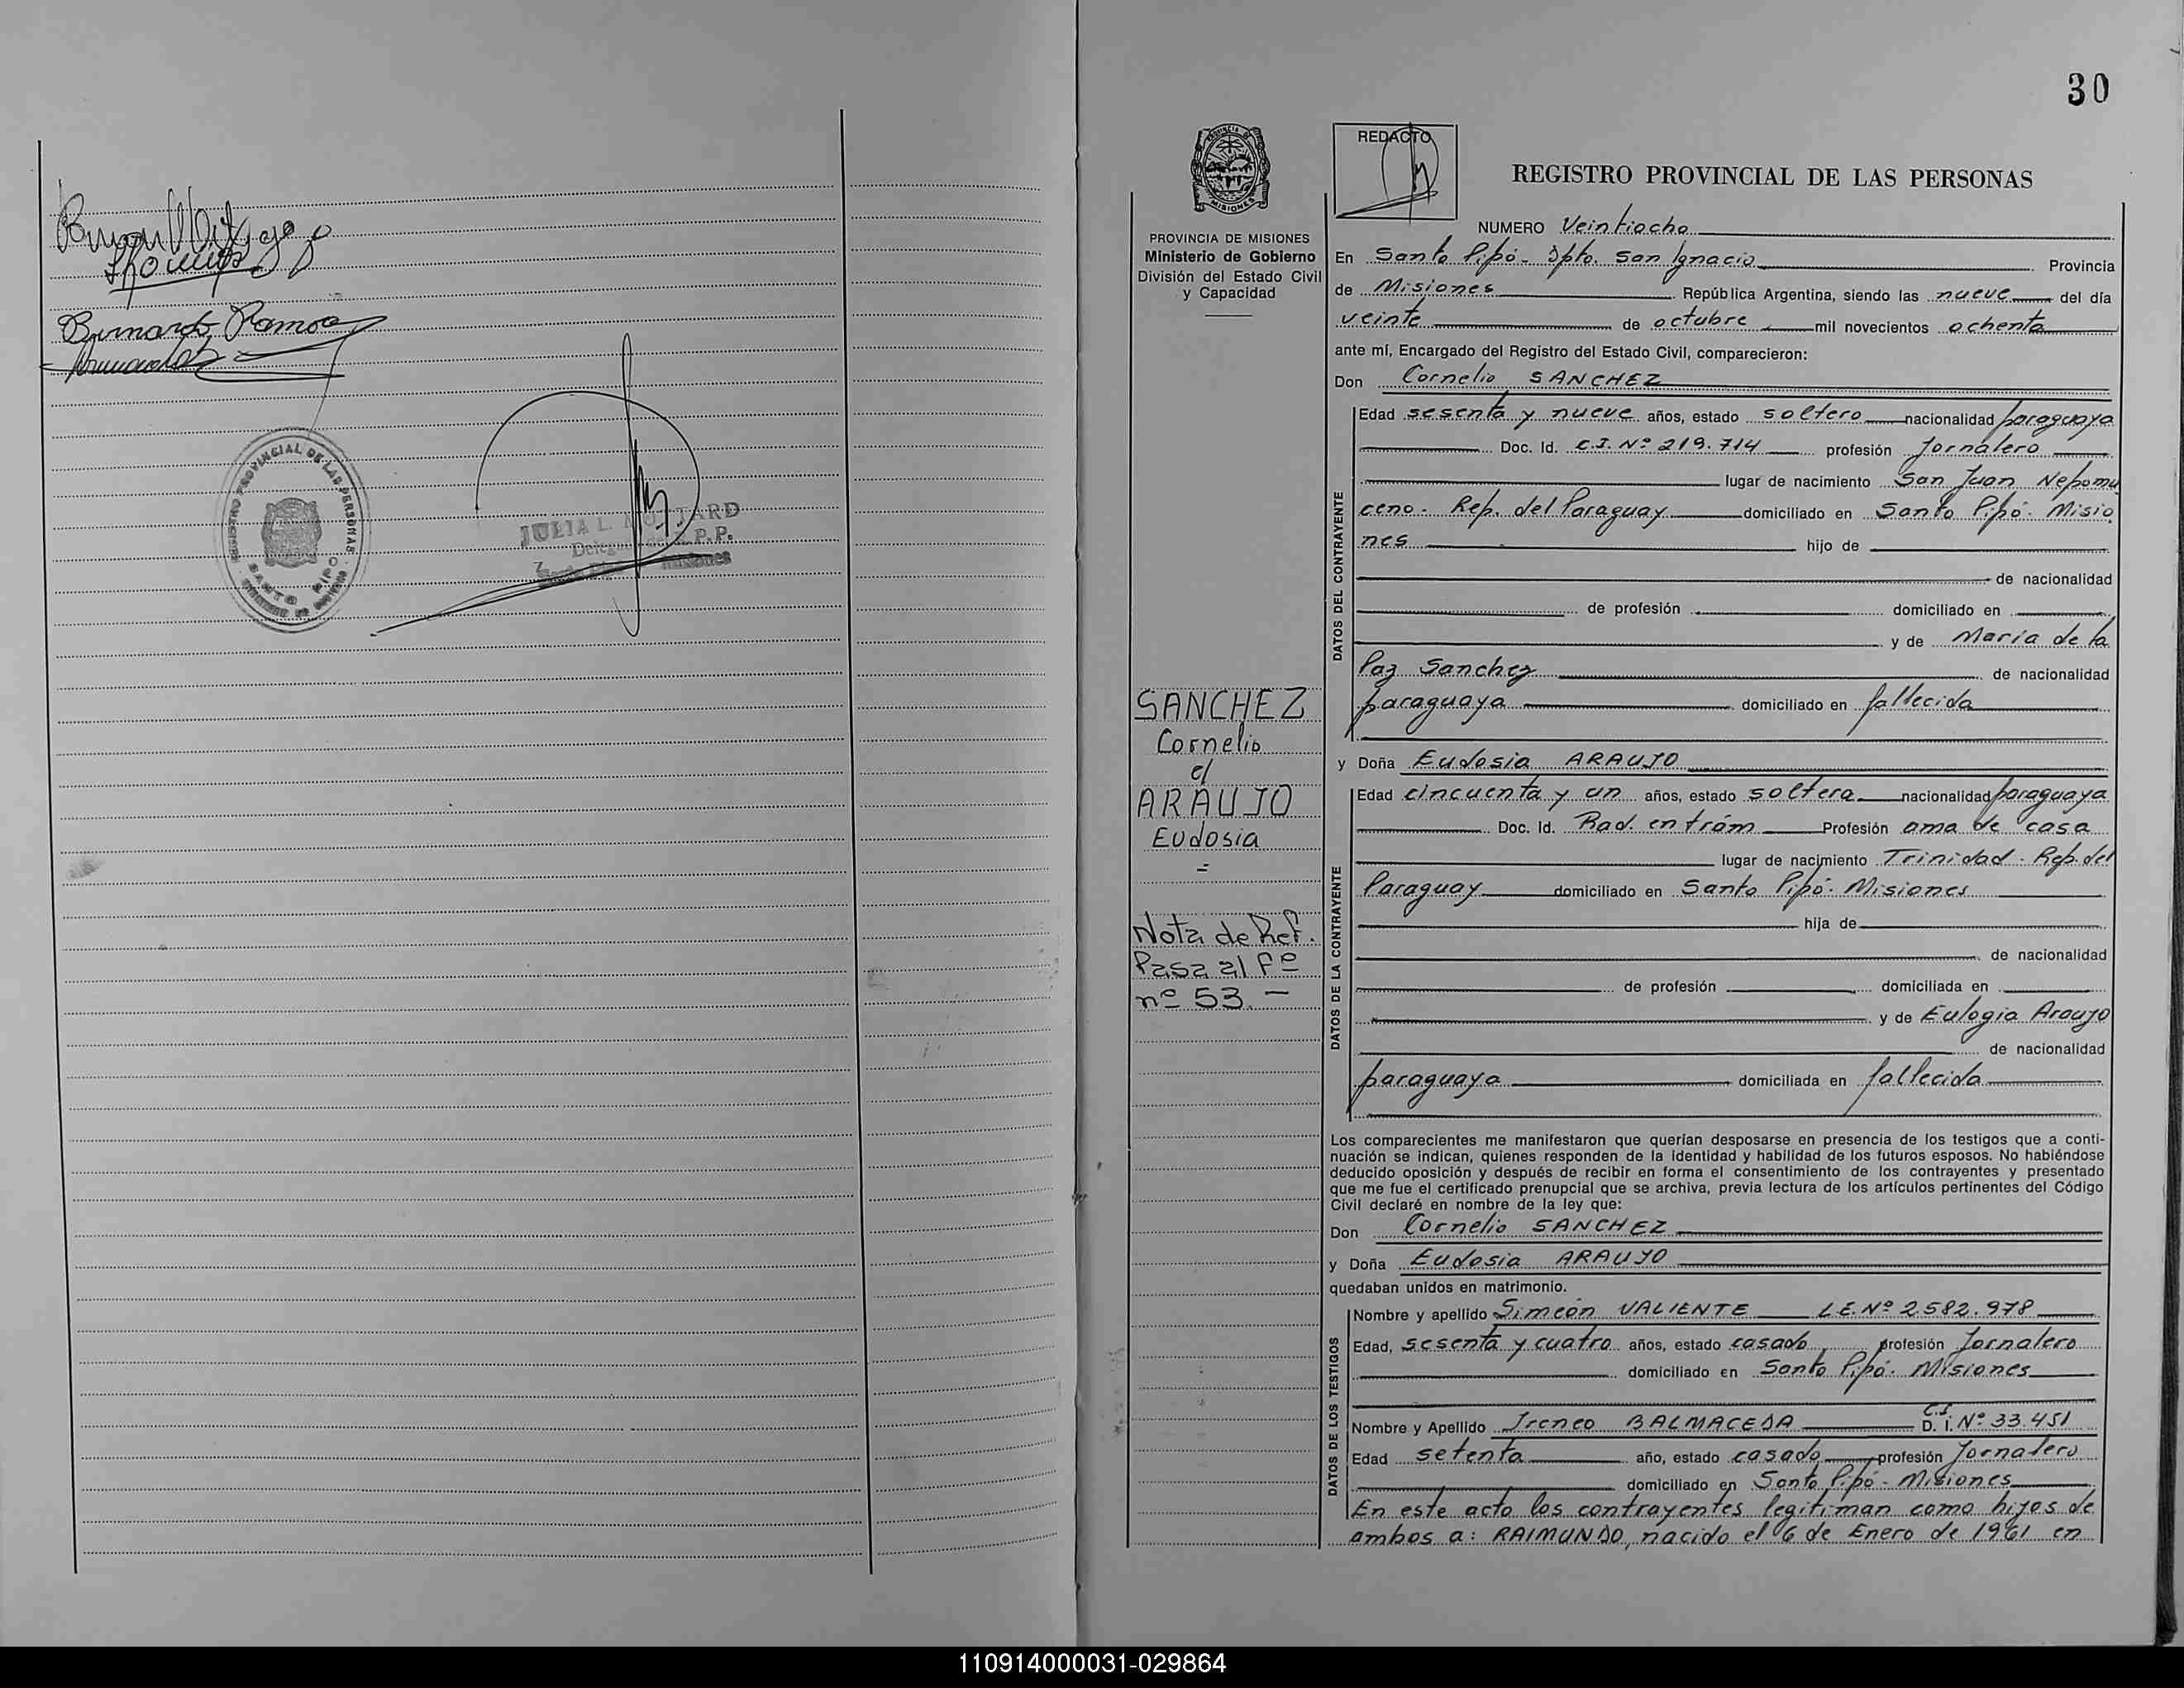 Bernardo Ramos
REGISTRO PROVINCIAL DE LAS PERSONAS
SANTO PIPO
JULIA L.
Misiones
30
PROVINCIA DE
MISIONES
REDACTO
REGISTRO PROVINCIAL DE LAS PERSONAS
PROVINCIA DE MISIONES
Ministerio de Gobierno
División del Estado Civil
y Capacidad
SANCHEZ
Cornelio
c/
ARAUJO
Eudosia
=
Nota de Ref.
Pasa al Fº
nº 53.-
NUMERO Veintiocho
En Santo Pipó - Dpto. San Ignacio Provincia
de Misiones República Argentina, siendo las nueve del día
veinte de octubre mil novecientos ochenta
ante mí, Encargado del Registro del Estado Civil, comparecieron:
Don Cornelio SANCHEZ
DATOS DEL CONTRAYENTE
Edad sesenta y nueve años, estado soltero nacionalidad paraguaya
Doc. Id. C.I. Nº 219.714 profesión Jornalero
lugar de nacimiento San Juan Nepomu
ceno - Rep. del Paraguay domiciliado en Santo Pipó - Misio
nes hijo de
de nacionalidad
de profesión domiciliado en
y de María de la
Paz Sanchez de nacionalidad
paraguaya domiciliado en fallecida
y Doña Eudosia ARAUJO
DATOS DE LA CONTRAYENTE
Edad cincuenta y un años, estado soltera nacionalidad paraguaya
Doc. Id. Rad. en trám Profesión ama de casa
lugar de nacimiento Trinidad - Rep. del
Paraguay domiciliado en Santo Pipó - Misiones
hija de
de nacionalidad
de profesión domiciliada en
y de Eulogia Araujo
de nacionalidad
paraguaya domiciliada en fallecida
Los comparecientes me manifestaron que querían desposarse en presencia de los testigos que a conti-
nuación se indican, quienes responden de la identidad y habilidad de los futuros esposos. No habiéndose
deducido oposición y después de recibir en forma el consentimiento de los contrayentes y presentado
que me fue el certificado prenupcial que se archiva, previa lectura de los artículos pertinentes del Código
Civil declaré en nombre de la ley que:
Don Cornelio SANCHEZ
y Doña Eudosia ARAUJO
quedaban unidos en matrimonio.
DATOS DE LOS TESTIGOS
Nombre y apellido Simeón VALIENTE L.E. Nº 2.582.978
Edad, sesenta y cuatro años, estado casado profesión Jornalero
domiciliado en Santo Pipó - Misiones
Nombre y Apellido Ireneo BALMACEDA C.I. D. I. Nº 33.451
Edad setenta año, estado casado profesión Jornalero
domiciliado en Santo Pipó - Misiones
En este acto los contrayentes legitiman como hijos de
ambos a: RAIMUNDO, nacido el 6 de Enero de 1961 en
110914000031-029864